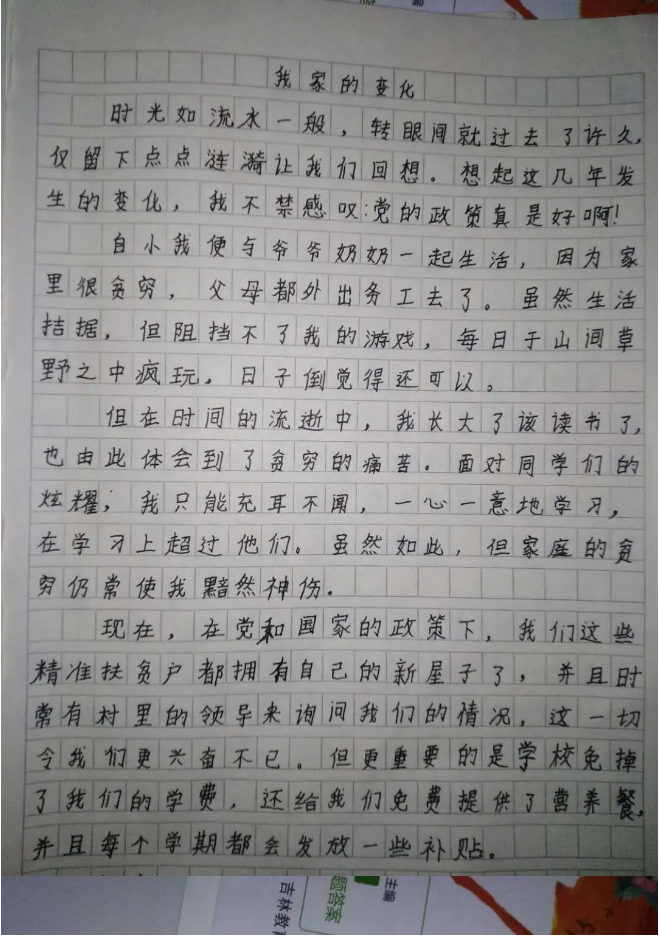 我家的变化
时光如流水一般，转眼间就过去了许久，
仅留下点点涟漪让我们回想。想起这几年发
生的变化，我不禁感叹:党的政策真是好啊!
自小我便与爷爷奶奶一起生活，因为家
里很贫穷，父母都外出务工去了。虽然生活
拮据，但阻挡不了我的游戏，每日于山间草
野之中疯玩。日子倒觉得还可以。
但在时间的流逝中，我长大了该读书了，
也由此体会到了贫穷的痛苦。面对同学们的
炫耀，我只能充耳不闻，一心一意地学习，
在学习上超过他们。虽然如此，但家庭的贫
穷仍常使我黯然神伤。
现在，在党和国家的政策下，我们这些
精准扶贫户都拥有自己的新屋子了，并且时
常有村里的领导来询问我们的情况，这一切
令我们更兴奋不已。但更重要的是学校免掉
了我们的学费，还给我们免费提供了营养餐，
并且每个学期都会发放一些补贴。
主编
题答案
吉林教育